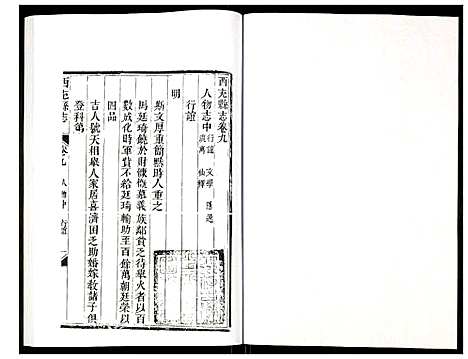 西充縣志卷九
人物志中 行誼 文學 隱逸
流寓 仙釋
行誼
明
斯文厚重簡默時人重之
馬廷琦饒於財慷慨慕義族鄰貧乏待舉火者以百
數成化時軍費不給廷琦輸助至百餘萬朝廷榮以
四品
吉人號天相舉人家居喜濟困乏助婚嫁教諸子俱
登科第
西充縣志 卷九 人物中 行誼